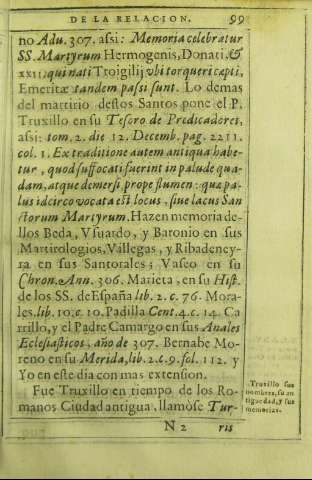 DE LA RELACION. 99
no Adu. 307. assi: Memoria celebratur
SS. Martyrum Hermogenis, Donati, &
xxii, qui nati Troigilij vbi torqueri cæpti,
Emeritæ tandem passi sunt. Lo demas
del martirio destos Santos pone el P.
Truxillo en su Tesoro de Predicadores,
assi: tom. 2. die 12. Decemb. pag. 2211.
col. 1. Ex traditione autem antiqua habe-
tur, quod suffocati fuerint in palude qua-
dam, atque demersi, prope flumen: quæ pa-
lus idcirco vocata est locus, siue lacus San
ctorum Martyrum. Hazen memoria de-
llos Beda, Vsuardo, y Baronio en sus
Martirologios, Villegas, y Ribadeney-
ra en sus Santorales; Vaseo en su
Chron. Ann. 306. Marieta, en su Hist.
de los SS. de España lib. 2. c. 76. Mora-
les. lib. 10. c. 10. Padilla Cent. 4. c. 14. Ca
rrillo, y el Padre Camargo en sus Anales
Eclesiasticos, año de 307. Bernabe Mo-
reno en su Merida, lib. 2. c. 9. fol. 112. y
Yo en este dia con mas extension.
Fue Truxillo en tiempo de los Ro-
manos Ciudad antigua, llamòse Tur-
N 2 ris
Truxillo sus
nombres, su an
tiguedad, y sus
memorias.